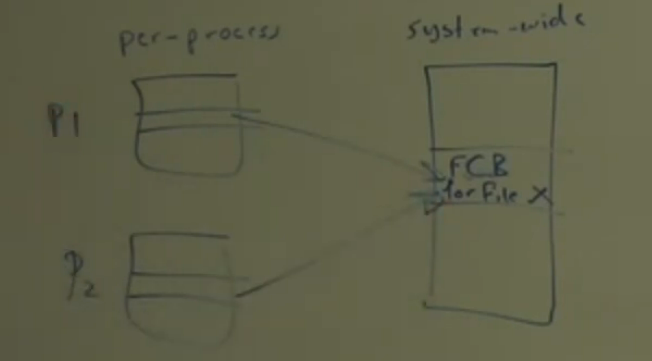 per-process
system-wide
P1
FCB
for File X
P2